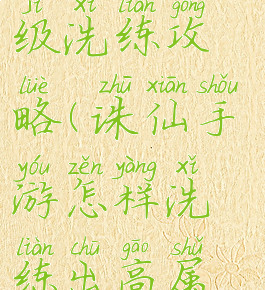 jí xǐ liàn gōng
级洗练攻
lüè zhū xiān shǒu
略(诛仙手
yóu zěn yàng xǐ
游怎样洗
liàn chū gāo shǔ
练出高属